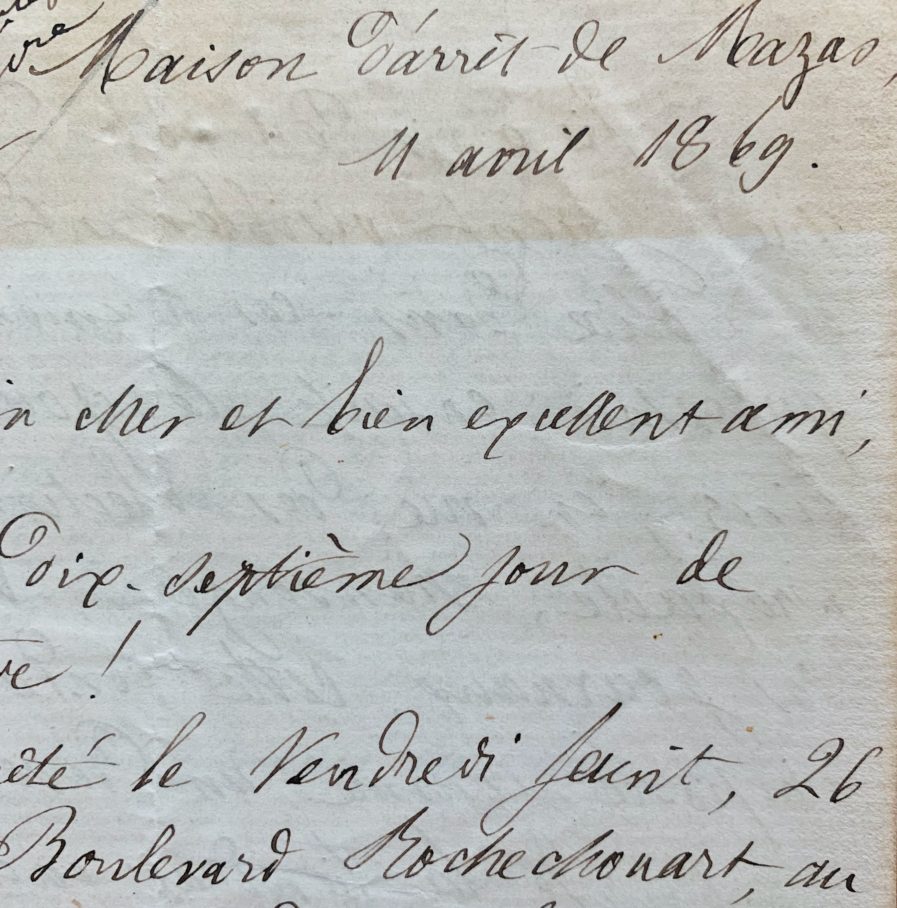 Maison d'arrêt de Mazas,
11 avril 1869.
cher et bien excellent ami,
Dix-septième jour de
!
le Vendredi Saint, 26
Boulevard Rochechouart, au